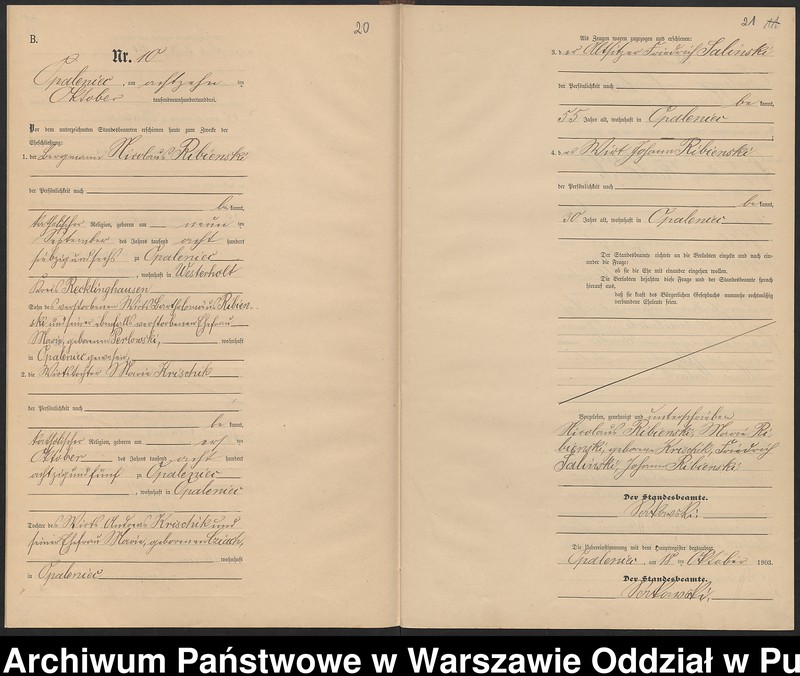 20
B.
Nr. 10
Opaleniec, am achtzehn ten
Oktober tausendneunhundertunddrei.
Vor dem unterzeichneten Standesbeamten erschienen heute zum Zwecke der
Eheschließung:
1. der Bergmann Nicolaus Ribienski
der Persönlichkeit nach
be kannt,
katholischer Religion, geboren am neun ten
September des Jahres tausend acht hundert
siebzigundsechs zu Opaleniec
, wohnhaft in Westerholt
Kreis Recklinghausen
Sohn des verstorbenen Wirts Bartholomäus Ribien-
ski und seiner ebenfalls verstorbenen Ehefrau
Marie, geborenen Perlowski, wohnhaft
in Opaleniec gewesen,
2. die Wirtstochter Marie Krischik
der Persönlichkeit nach
be kannt,
katholischer Religion, geboren am ten
Oktober des Jahres tausend acht hundert
achtzigundfünf zu Opaleniec
, wohnhaft in Opaleniec
Tochter des Wirts Andreas Krischik und
seiner Ehefrau Marie, geborenen
wohnhaft
in Opaleniec
21
Als Zeugen waren zugezogen und erschienen:
3. der Altsitzer Friedrich Salinski
der Persönlichkeit nach
be kannt,
55 Jahre alt, wohnhaft in Opaleniec
;
4. der Wirt Johann Ribienski
der Persönlichkeit nach
be kannt,
30 Jahre alt, wohnhaft in Opaleniec
Der Standesbeamte richtete an die Verlobten einzeln und nach ein-
ander die Frage:
ob sie die Ehe mit einander eingehen wollen.
Die Verlobten bejahten diese Frage und der Standesbeamte sprach
hierauf aus,
daß sie kraft des Bürgerlichen Gesetzbuchs nunmehr rechtmäßig
verbundene Eheleute seien.
Vorgelesen, genehmigt und unterschrieben
Nicolaus Ribienski, Marie Ri-
bienski, geborene Krischik, Friedrich
Salinski, Johann Ribienski
Der Standesbeamte.
Die Uebereinstimmung mit dem Hauptregister beglaubigt
Opaleniec, am 18 ten Oktober 1903.
Der Standesbeamte.
Archiwum Państwowe w Warszawie Oddział w Pu